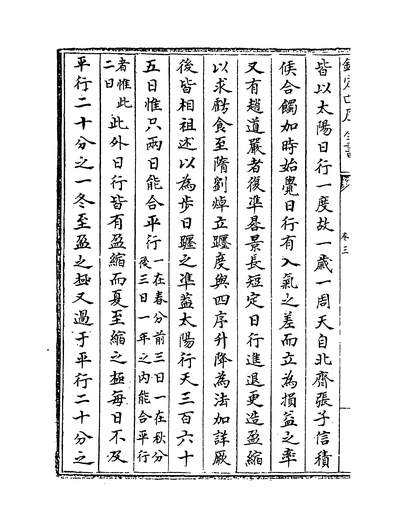 欽定四庫全書
卷三
皆以太陽日行一度故一歲一周天自北齊張子信積
候合觸加時始覺日行有入氣之差而立為損益之率
又有趙道嚴者復準晷景長短定日行進退更造盈縮
以求虧食至隋劉焯立躔度與四序升降為法加詳厥
後皆相祖述以為步日躔之準蓋太陽行天三百六十
五日惟只兩日能合平行一在春分前三日一在秋分
後三日一年之内能合平行
者惟此
二日此外日行皆有盈縮而夏至縮之極每日不及
平行二十分之一冬至盈之極又過于平行二十分之